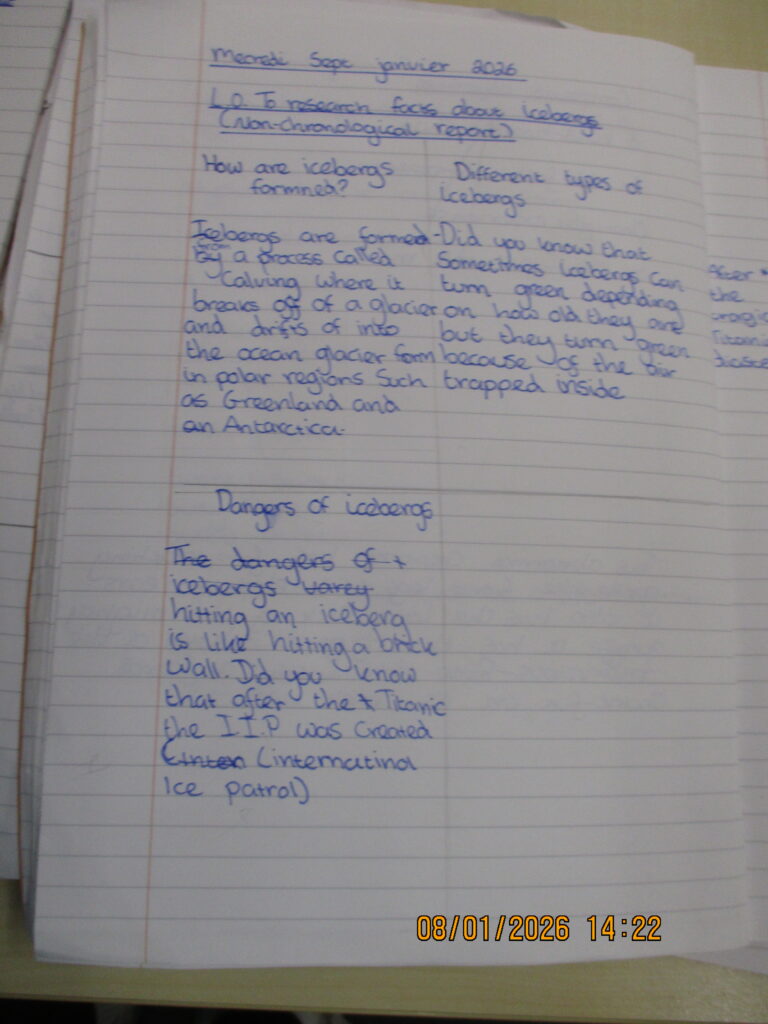 Mecredi Sept janvier 2026
L.O. To research facts about icebergs
(Non-chronological report)
How are icebergs
formned?
Icebergs are formed
from
By a process called
Calving where it
breaks off of a glacier
and drifts of into
the ocean glacier form
in polar regions Such
as Greenland and
an Antarctica.
Different types of
icebergs
-Did you know that
Sometimes icebergs can
turn green depending
on how old they are
but they turn green
because of the air
trapped inside
Dangers of icebergs
The dangers of +
icebergs varey
hitting an iceberg
is like hitting a brick
wall. Did you know
that after the * Titanic
the I.I.P was created
(inten (internatinal
Ice patrol)
After *
the
tragic
Titanic
disaste
08/01/2026 14:22